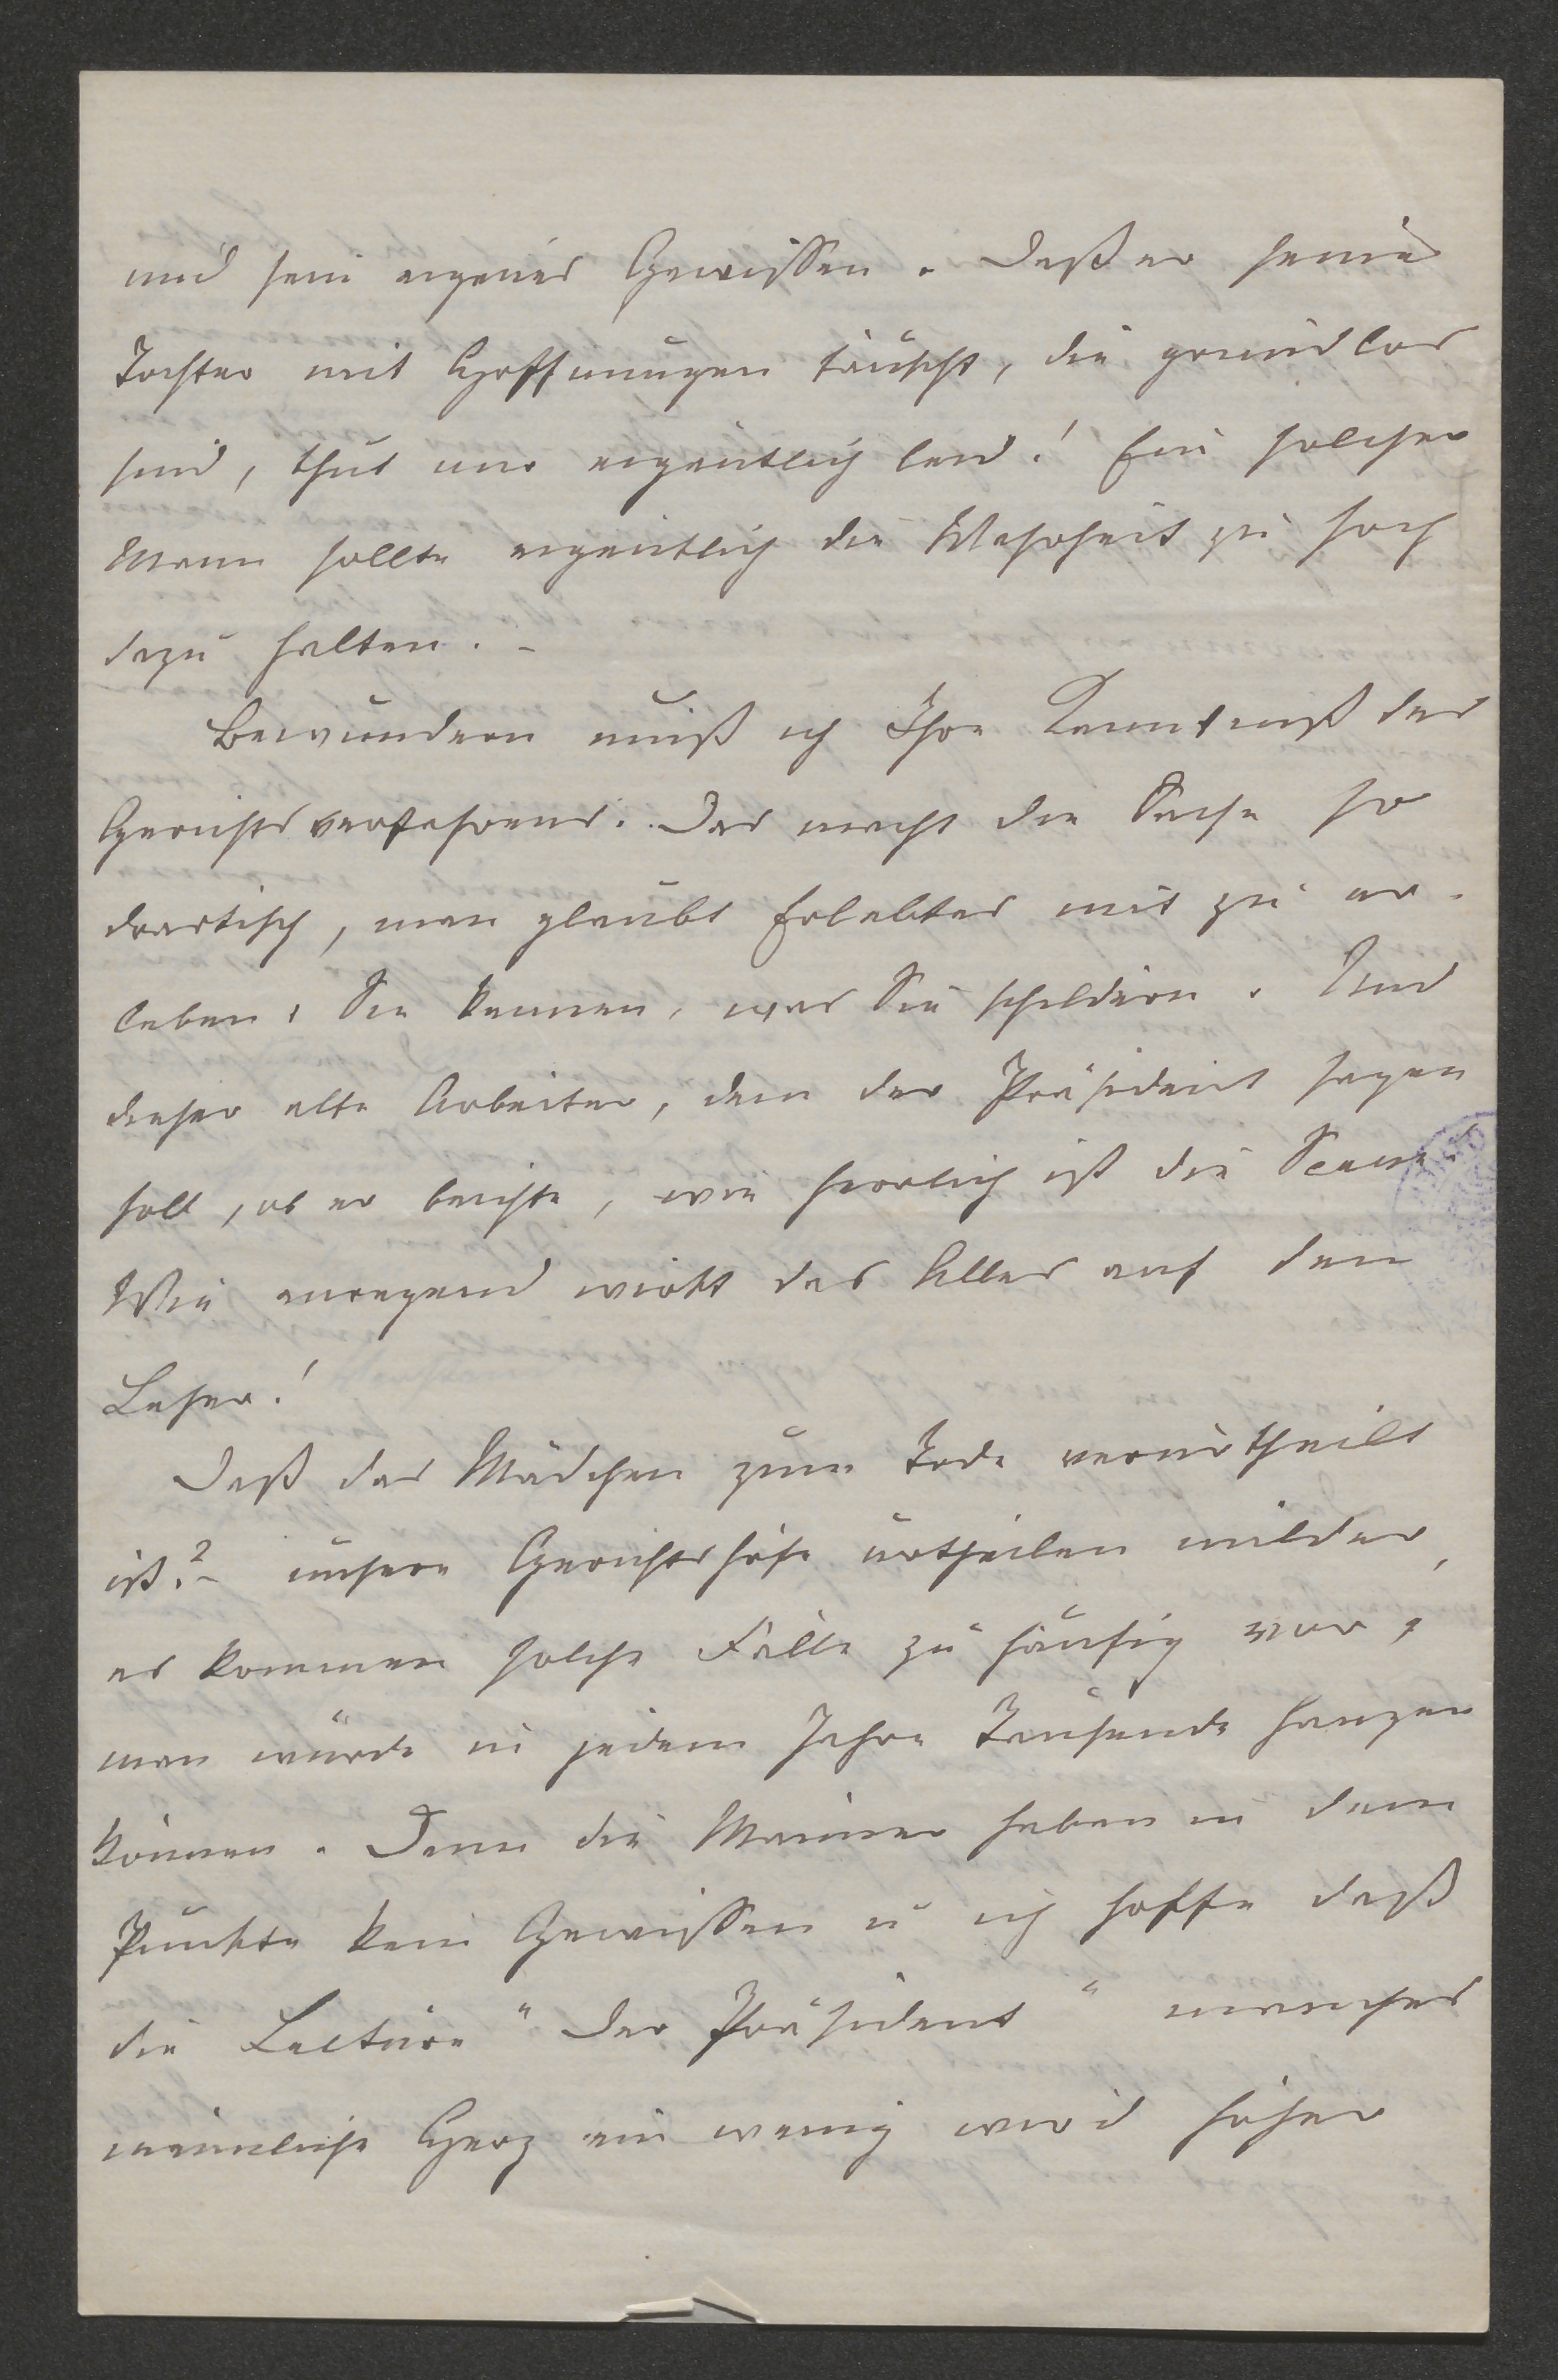 und sein eigenes Gewissen. Daß er seine
Tochter mit Hoffnungen täuscht, die grundlos
sind, thut mir eigentlich leid! Ein solcher
Mann sollte eigentlich die Wahrheit zu hoch
dazu halten. -
Bewundern muß ich Ihre Kenntniß des
Gerichtsverfahrens. Das macht die Sache so
drastisch, man glaubt Erlebtes mit zu er-
leben, Sie kennen, was Sie schildern. Und
dieser alte Arbeiter, dem der Präsident sagen
soll, ob er beichte, wie herrlich ist die Scene!
Wie anregend wirkt das Alles auf den
Leser!
Daß das Mädchen zum Tode verurtheilt
ist? - unsere Gerichtshöfe urtheilen milder,
es kommen solche Fälle zu häufig vor,
man würde in jedem Jahre Tausende hangen
können. Denn die Männer haben in dem
Punkte kein Gewissen u ich hoffe daß
die Lectüre "Der Präsident" manches
männliche Herz ein wenig wird höher